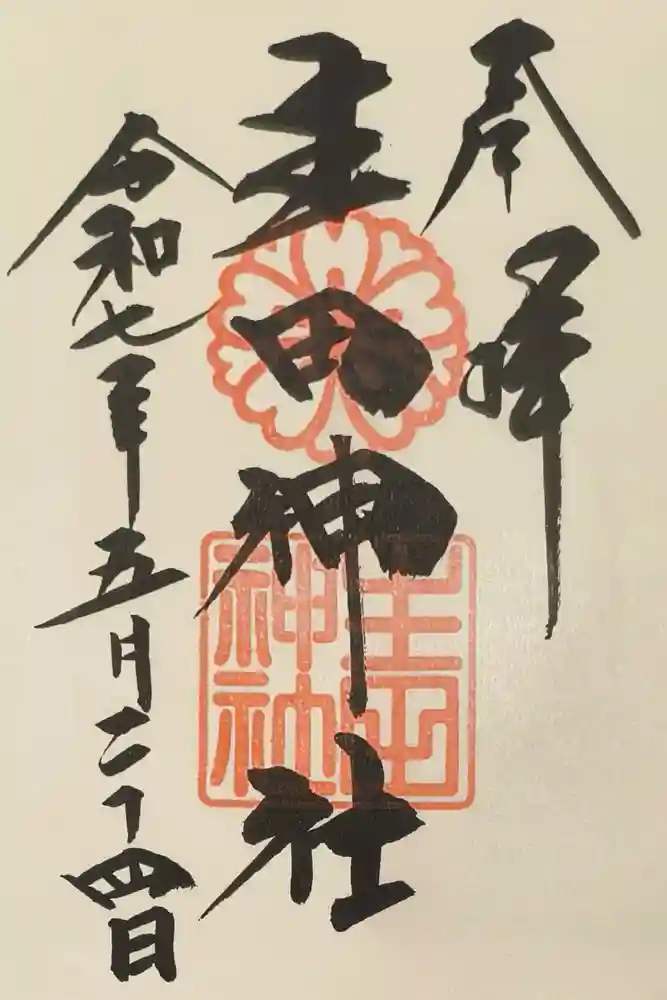 奉拝
生田神社
生田
神社
令和七年五月二十四日